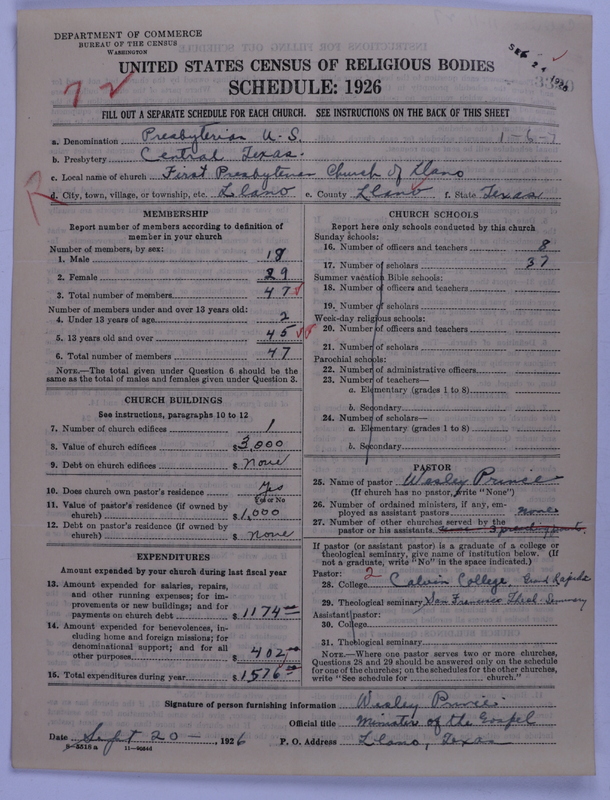 DEPARTMENT OF COMMERCE
BUREAU OF THE CENSUS
WASHINGTON
UNITED STATES CENSUS OF RELIGIOUS BODIES
SCHEDULE: 1926
72
FILL OUT A SEPARATE SCHEDULE FOR EACH CHURCH. SEE INSTRUCTIONS ON THE BACK OF THIS SHEET
a. Denomination Presbyterian U.S. 1-6-7
b. Presbytery Central Texas.
c. Local name of church First Presbyterian Church of Llano
d. City, town, village, or township, etc. Llano e. County Llano f. State Texas
R
MEMBERSHIP
Report number of members according to definition of
member in your church
Number of members, by sex:
1. Male 18
2. Female 29
3. Total number of members 47
Number of members under and over 13 years old:
4. Under 13 years of age 2
5. 13 years old and over 45
6. Total number of members 47
NOTE.—The total given under Question 6 should be the
same as the total of males and females given under Question 3.
CHURCH BUILDINGS
See instructions, paragraphs 10 to 12
7. Number of church edifices 1
8. Value of church edifices $3,000
9. Debt on church edifices $ None
10. Does church own pastor's residence Yes
Yes or No
11. Value of pastor's residence (if owned by
church) $1,000
12. Debt on pastor's residence (if owned by
church) $ None
EXPENDITURES
Amount expended by your church during last fiscal year
13. Amount expended for salaries, repairs,
and other running expenses; for im-
provements or new buildings; and for
payments on church debt $1174.00
14. Amount expended for benevolences, in-
cluding home and foreign missions; for
denominational support; and for all
other purposes $402.00
15. Total expenditures during year $1576.00
CHURCH SCHOOLS
Report here only schools conducted by this church
Sunday schools:
16. Number of officers and teachers 8
17. Number of scholars 37
Summer vacation Bible schools:
18. Number of officers and teachers
19. Number of scholars
Week-day religious schools:
20. Number of officers and teachers
21. Number of scholars
Parochial schools:
22. Number of administrative officers
23. Number of teachers—
a. Elementary (grades 1 to 8)
b. Secondary
24. Number of scholars—
a. Elementary (grades 1 to 8)
b. Secondary
PASTOR
25. Name of pastor Wesley Prince
(If church has no pastor, write "None")
26. Number of ordained ministers, if any, em-
ployed as assistant pastors None
27. Number of other churches served by the
pastor or his assistants 3 preaching points
If pastor (or assistant pastor) is a graduate of a college or
theological seminary, give name of institution below. (If
not a graduate, write "No" in the space indicated.)
Pastor: 2
28. College Calvin College, Grand Rapids
29. Theological seminary San Francisco Theol. Seminary
Assistant pastor:
30. College
31. Theological seminary
NOTE.—Where one pastor serves two or more churches,
Questions 28 and 29 should be answered only on the schedule
for one of the churches; on the schedules for the other churches,
write "See schedule for church."
Signature of person furnishing information Wesley Prince
Official title Minister of the Gospel
Date Sept 20, 1926 P. O. Address Llano, Texas